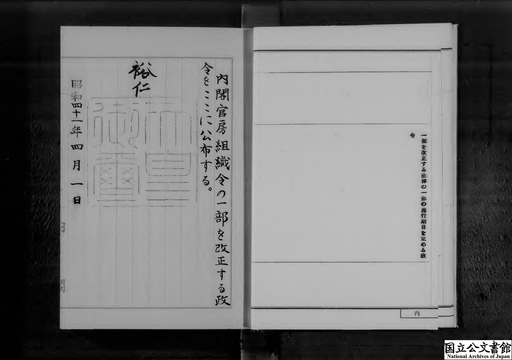 一部を改正する法律の一部の施行期日を定める政
令
内閣官房組織令の一部を改正する政
令をここに公布する。
裕仁
昭和四十一年四月一日
内
国立公文書館
National Archives of Japan